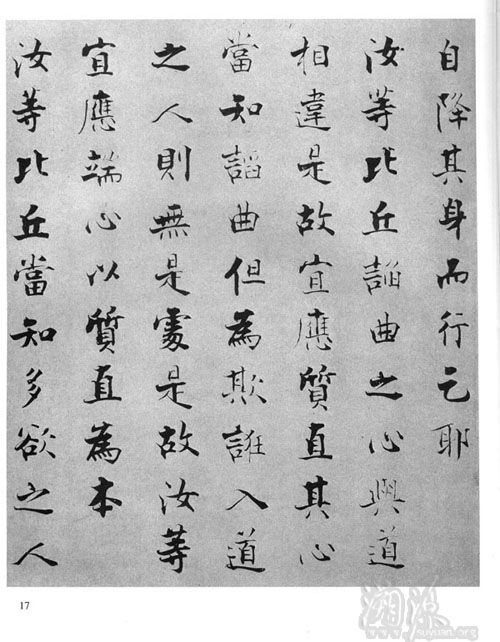 自降其身而行乞耶
汝等比丘諂曲之心與道
相違是故宜應質直其心
當知諂曲但為欺誑入道
之人則無是處是故汝等
宜應端心以質直為本
汝等比丘當知多欲之人
17
溯源
suyuan.org